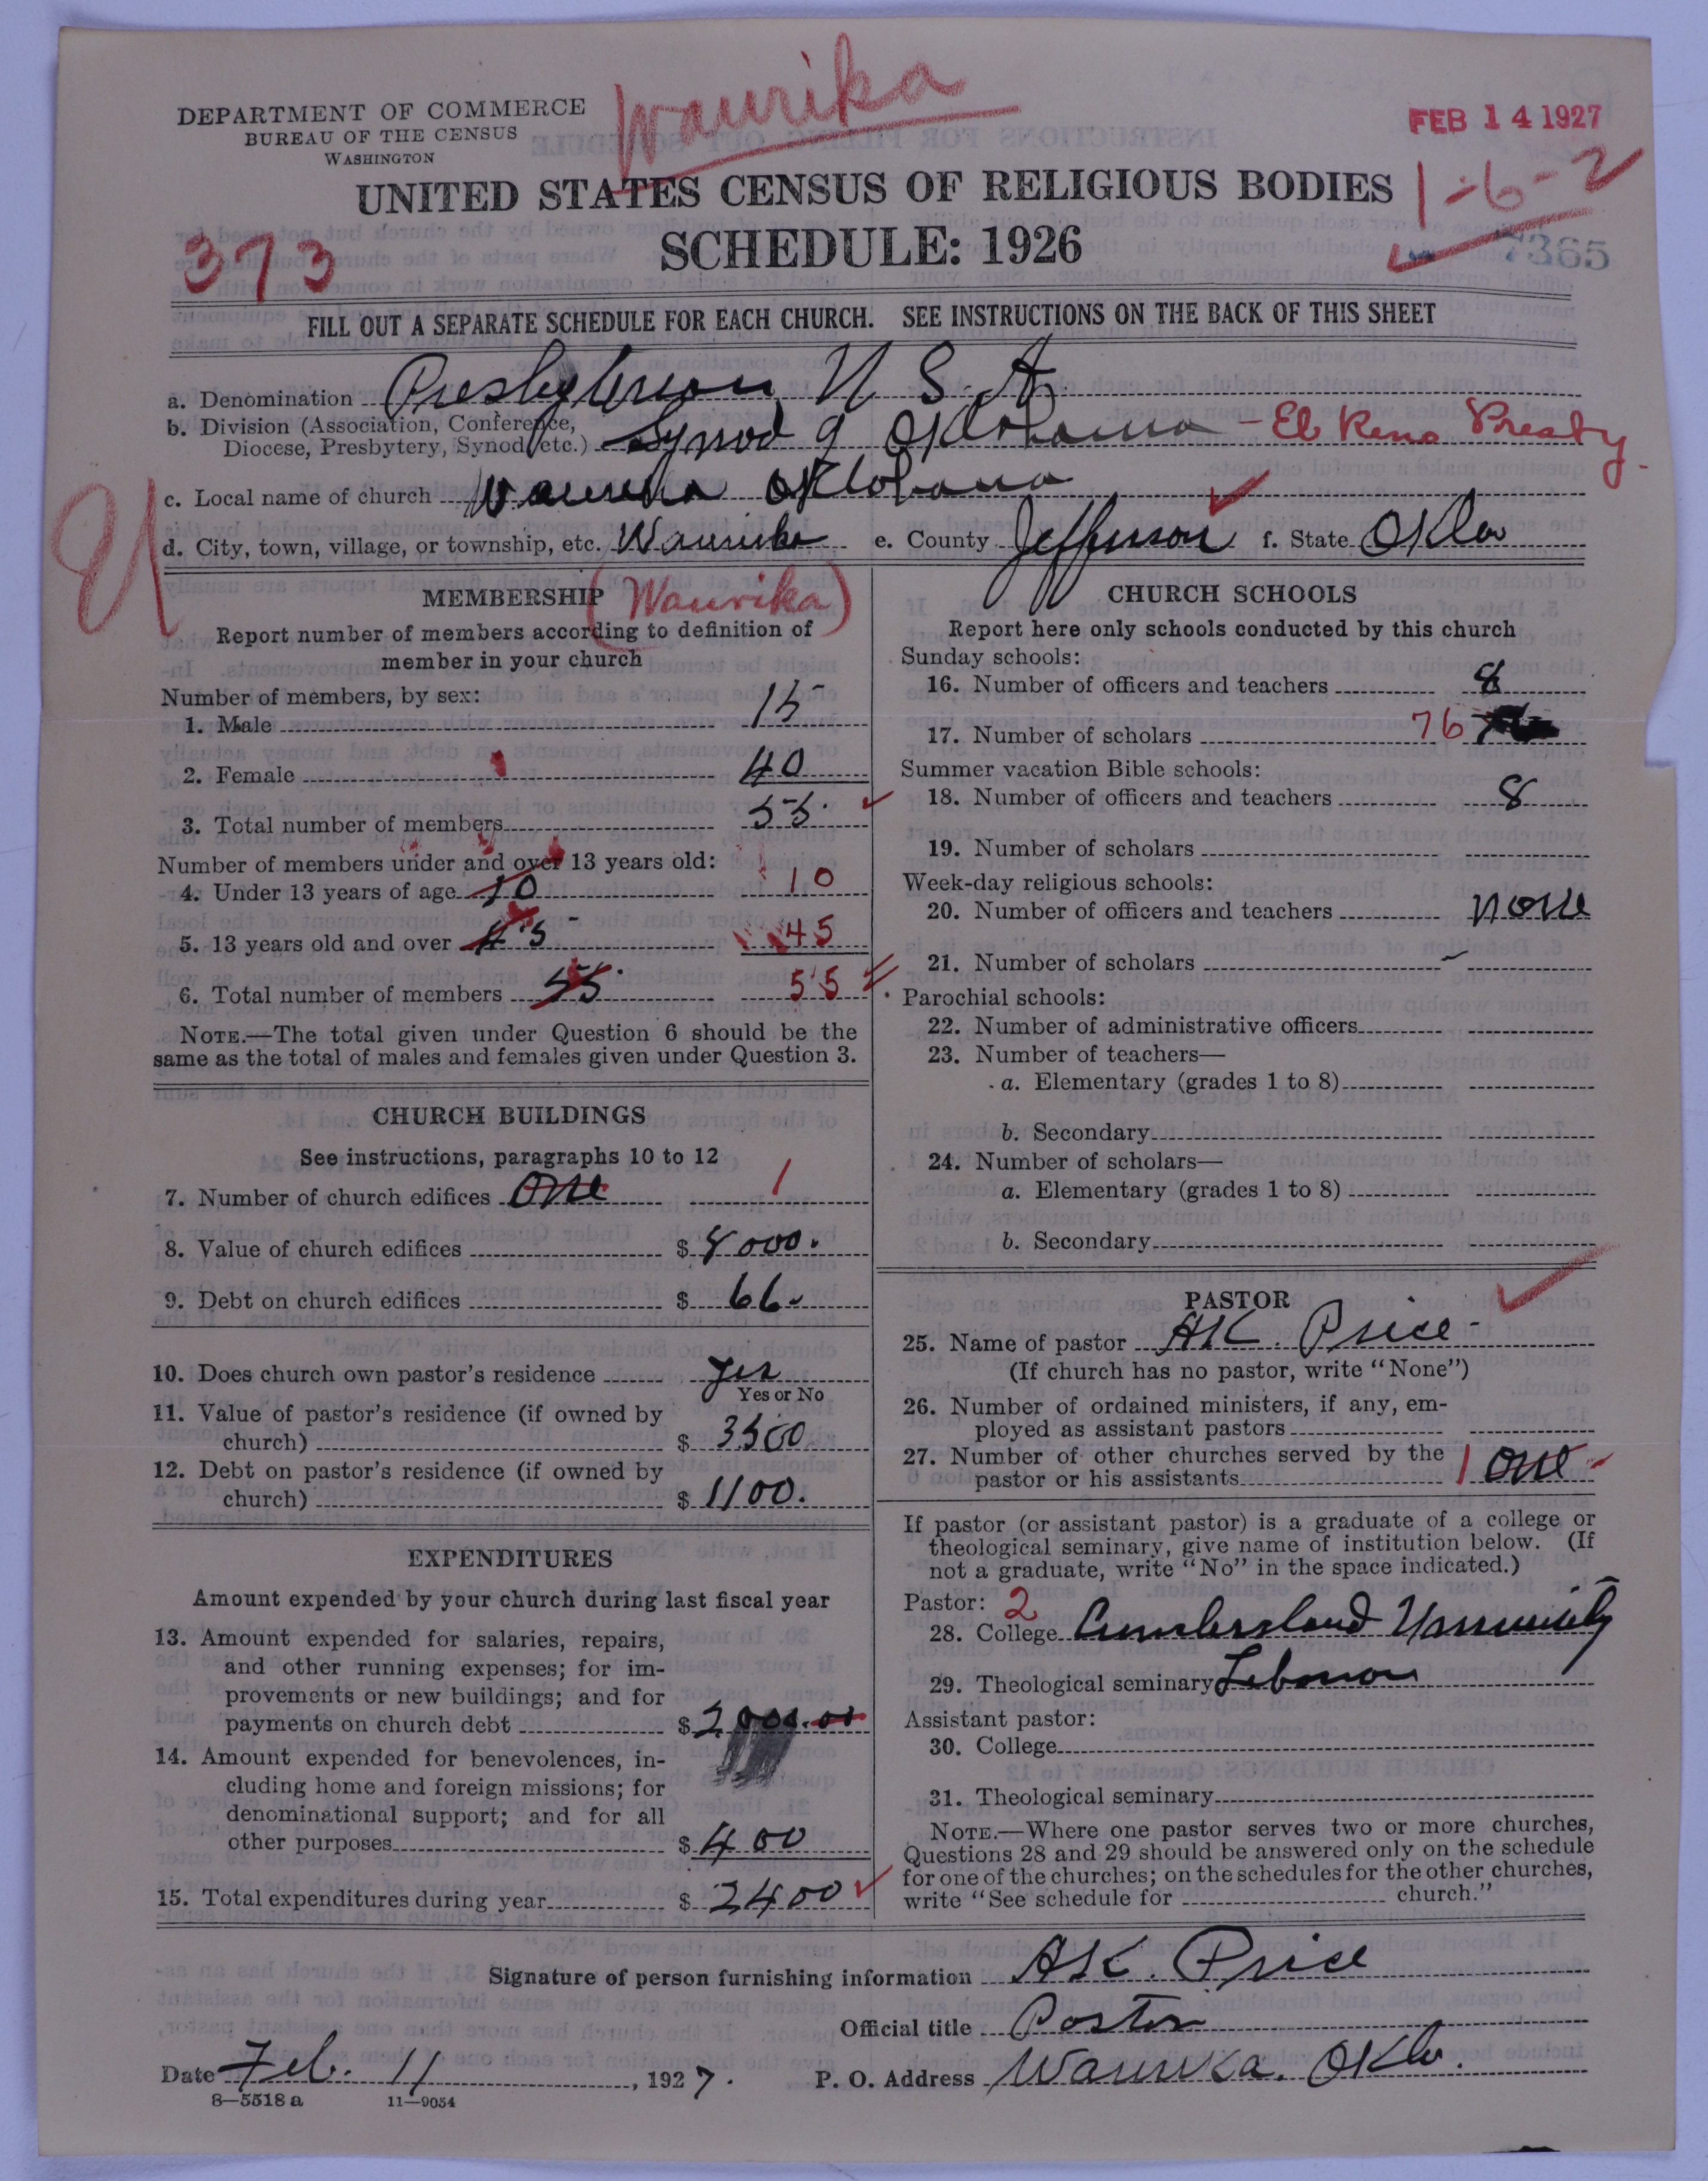 Waurika
DEPARTMENT OF COMMERCE
BUREAU OF THE CENSUS
WASHINGTON
FEB 14 1927
UNITED STATES CENSUS OF RELIGIOUS BODIES
1-6-2
373
SCHEDULE: 1926
7365
FILL OUT A SEPARATE SCHEDULE FOR EACH CHURCH. SEE INSTRUCTIONS ON THE BACK OF THIS SHEET
a. Denomination Presbyterian U S. A.
b. Division (Association, Conference,
Diocese, Presbytery, Synod, etc.) Synod of Oklohama - El Reno Presby.
c. Local name of church Waurika Oklohama
d. City, town, village, or township, etc. Waurika e. County Jefferson f. State Okla
MEMBERSHIP (Waurika)
Report number of members according to definition of
member in your church
Number of members, by sex:
1. Male 15
2. Female 40
3. Total number of members 55.
Number of members under and over 13 years old:
4. Under 13 years of age 10 10
5. 13 years old and over 45 45
6. Total number of members 55 55
NOTE.—The total given under Question 6 should be the
same as the total of males and females given under Question 3.
CHURCH BUILDINGS
See instructions, paragraphs 10 to 12
7. Number of church edifices One 1
8. Value of church edifices $ 8000.
9. Debt on church edifices $ 66.
10. Does church own pastor's residence Yes
Yes or No
11. Value of pastor's residence (if owned by
church) $ 3500
12. Debt on pastor's residence (if owned by
church) $ 1100.
EXPENDITURES
Amount expended by your church during last fiscal year
13. Amount expended for salaries, repairs,
and other running expenses; for im-
provements or new buildings; and for
payments on church debt $ 2000.00
14. Amount expended for benevolences, in-
cluding home and foreign missions; for
denominational support; and for all
other purposes $ 400
15. Total expenditures during year $ 2400
CHURCH SCHOOLS
Report here only schools conducted by this church
Sunday schools:
16. Number of officers and teachers 8
17. Number of scholars 76
Summer vacation Bible schools:
18. Number of officers and teachers 8
19. Number of scholars
Week-day religious schools:
20. Number of officers and teachers none
21. Number of scholars
Parochial schools:
22. Number of administrative officers
23. Number of teachers—
a. Elementary (grades 1 to 8)
b. Secondary
24. Number of scholars—
a. Elementary (grades 1 to 8)
b. Secondary
PASTOR
25. Name of pastor AK. Price
(If church has no pastor, write "None")
26. Number of ordained ministers, if any, em-
ployed as assistant pastors
27. Number of other churches served by the
pastor or his assistants 1 one
If pastor (or assistant pastor) is a graduate of a college or
theological seminary, give name of institution below. (If
not a graduate, write "No" in the space indicated.)
Pastor: 2
28. College Cumberland University
29. Theological seminary Lebanon
Assistant pastor:
30. College
31. Theological seminary
NOTE.—Where one pastor serves two or more churches,
Questions 28 and 29 should be answered only on the schedule
for one of the churches; on the schedules for the other churches,
write "See schedule for church."
Signature of person furnishing information AK. Price
Official title Pastor
Date Feb. 11, 1927. P. O. Address Waurika. Okla.
8—5518 a 11—9054